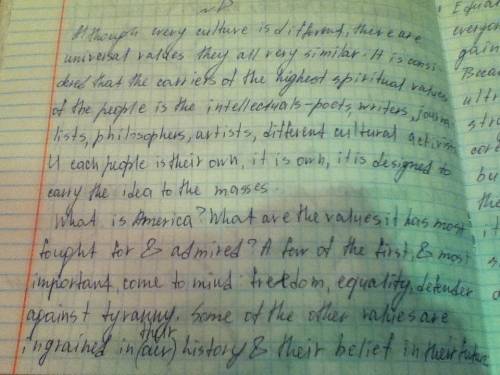 Although every culture is different, there are
universal values they all very similar. It is consi-
dered that the carriers of the highest spiritual values
of the people is the intellectuals-poets, writers, journa
lists, philosophers, artists, different cultural activism
U each people is their own, it is own, it is designed to
carry the idea to the masses.
What is America? What are the values it has most
fought for & admired? A few of the first, & most
important, come to mind: freedom, equality, defender
against tyranny. Some of the other values are
their
ingrained in (our) history & their belief in their future
Equal
everyon
gain
Becau
ultr
str
core
bu
the
it
s